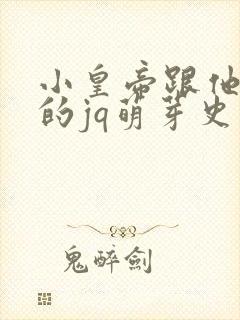 小皇帝跟他
的jq萌芽史
鬼醉劍